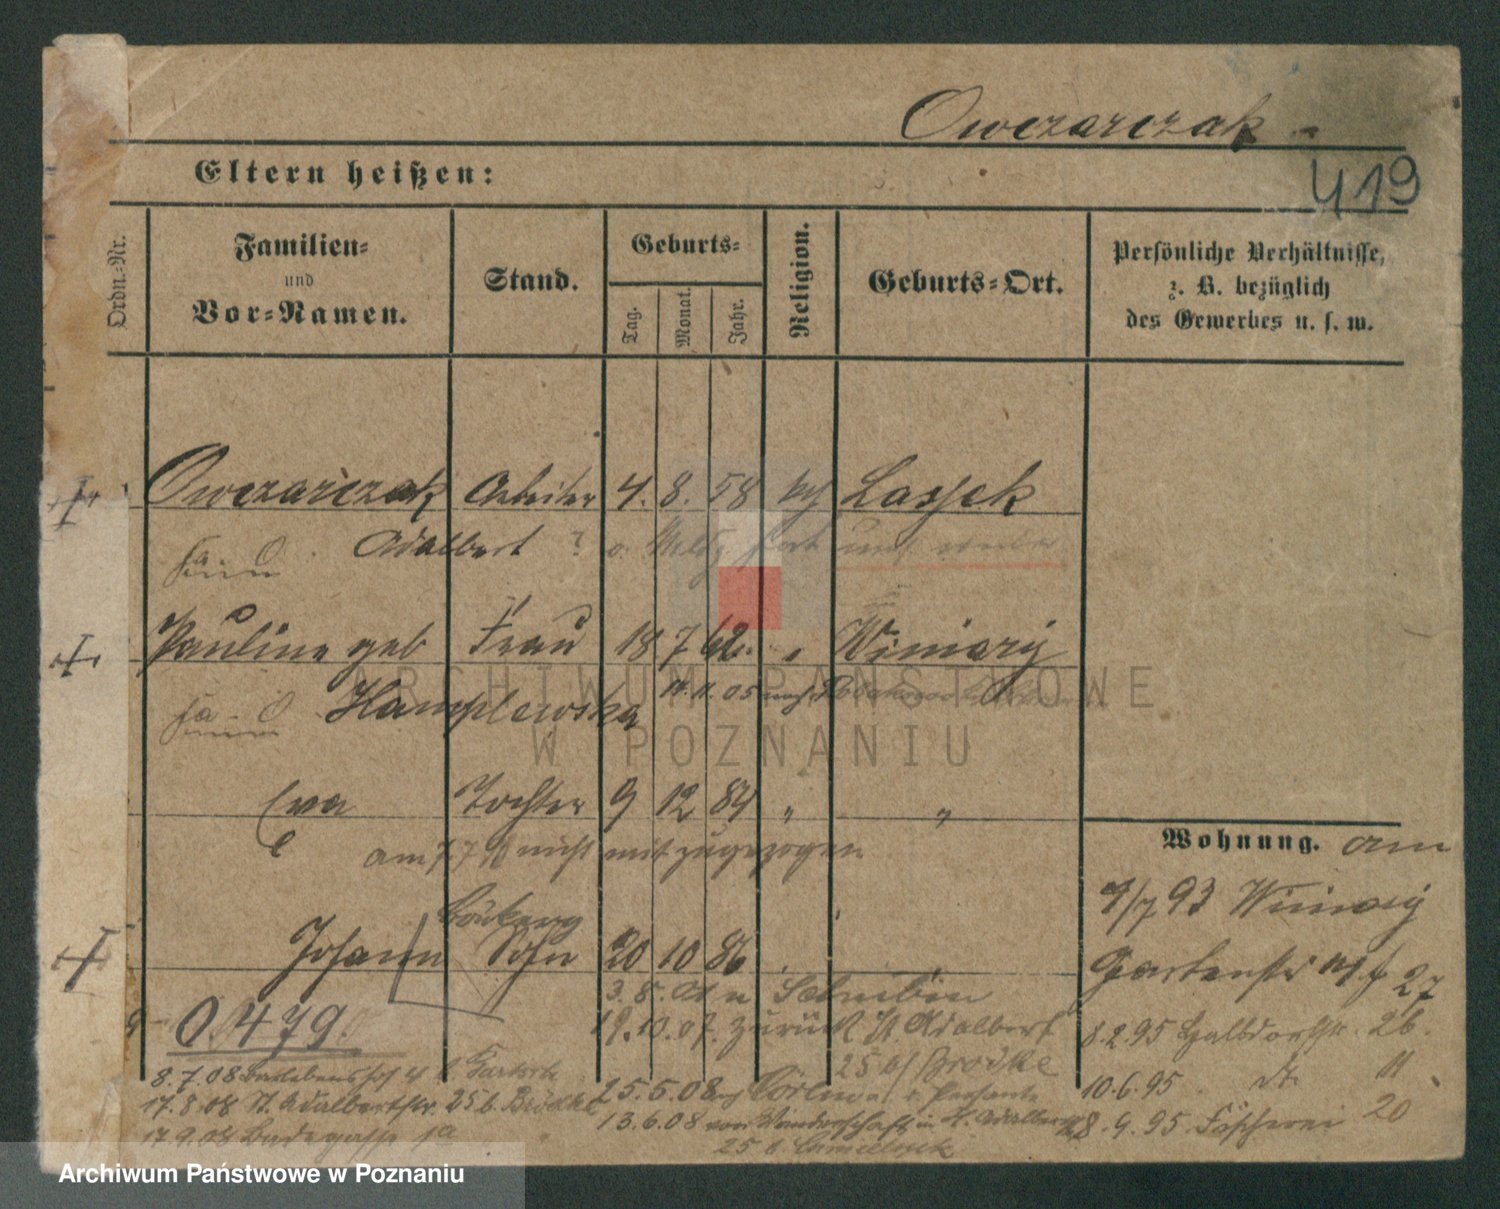 Owczarczak
419
Eltern heißen:
Ordn.-Nr.
Familien-
und
Vor-Namen.
Stand.
Geburts-
Tag.
Monat.
Jahr.
Religion.
Geburts-Ort.
Persönliche Verhältnisse,
z. B. bezüglich
des Gewerbes u. s. w.
Owczarczak Arbeiter 4. 8. 58 kath Lassek
Adalbert
Pauline geb Frau 18 7 62 " Winiary
Hamplewska 14. 11. 05
Eva Tochter 9 12 84 " "
am 7 7 nicht mit zugezogen
Wohnung. am
4/7 93 Winiary
Johann Sohn 20 10 86
Gartenstr 27
3. 8. 01 n Schubin
0.479.
19. 10. 07. zurück St Adalbert
8.2.95 Halbdorfstr. 26.
25 b/ Brodke
8.7.08
25.5.08
10.6.95 11
17.8.08 St. Adalbertstr. 25 b. Brodke
13.6.08 von Wanderschaft in St. Adalbert
8.9.95 Fischerei 20
17.9.08 Badegasse 1a
25 b.
ARCHIWUM PAŃSTWOWE
W POZNANIU
Archiwum Państwowe w Poznaniu